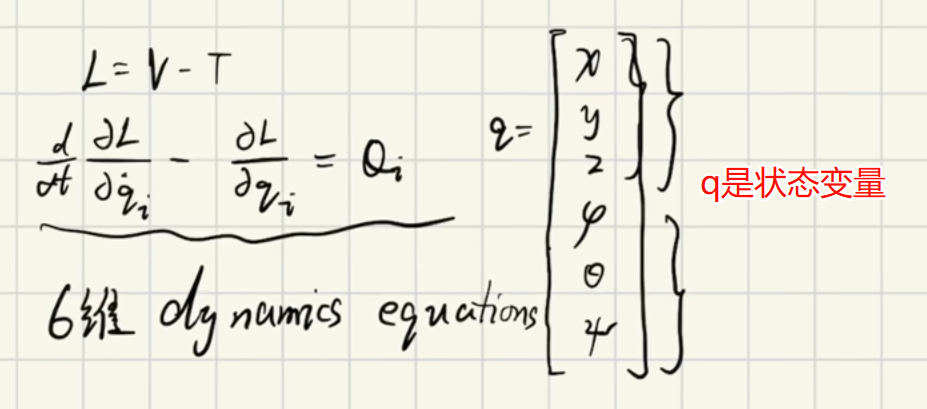 L = V - T
d/dt ∂L/∂q̇ᵢ - ∂L/∂qᵢ = Qᵢ
6维 dynamics equations
q = [x y z φ θ ψ]
q是状态变量